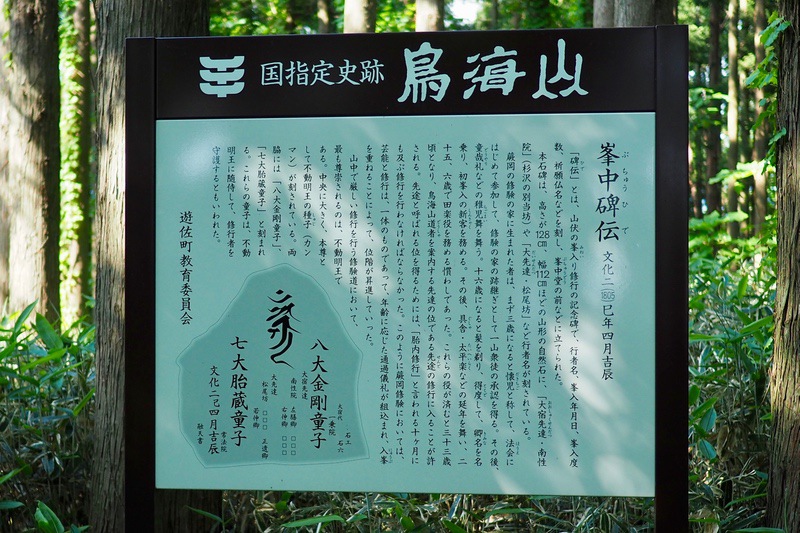 国指定史跡 鳥海山
ぶちゅうひで
峯中碑伝 文化二(1805)巳年四月吉辰
「碑伝」とは、山伏の峯入り修行の記念碑で、行者名、峯入年月日、峯入度
数、祈願仏名などを刻し、峯中堂の前などに立てられた。
本石碑は、高さが128㎝、幅112㎝ほどの山形の自然石に、「大宿先達・南性
院」(杉沢の別当坊)や「大先達・松尾坊」など行者名が刻されている。
蕨岡の修験の家に生まれた者は、まず三歳になると懐児と称して、法会に
はじめて参加して、修験の家の跡継ぎとして一山衆徒の承認を得る。その後、
童哉礼などの稚児舞を舞う。十六歳になると髪を剃り、得度して、卿名を名
乗り、初峯入の新客を務める。その後、具舎・太平楽などの延年を舞い、二
十五、六歳で田楽役を務める慣わしであった。これらの役が済むと三十三歳
頃となり、鳥海山道者を案内する先達の位である先途の修行に入ることが許
される。先途と呼ばれる位を得るためには、「胎内修行」と言われる十ヶ月に
も及ぶ修行を行わなければならなかった。このように蕨岡修験においては、
芸能と修行は、一体のものであって、年齢に応じた通過儀礼が組込まれ、入峯
を重ねることによって、位階が昇進していった。
山中で厳しい修行を行う修験道において、
最も尊崇されるのは、不動明王で
ある。中央に大きく、本尊と
して不動明王の種子「カン
マン」が刻されている。両
脇には「八大金剛童子」、
「七大胎蔵童子」と刻まれ
る。これらの童子は、不動
明王に随侍して、修行者を
守護するともいわれた。
遊佐町教育委員会
石工
石六
大宿代
一乗院
八大金剛童子
大宿先達
南性院
左膳卿 □□□
右仲卿 □□□
大先達
松尾坊 □□□ 正遺卿
□□□ 若仲卿
七大胎蔵童子
文化二巳四月吉辰
常法院
融天書